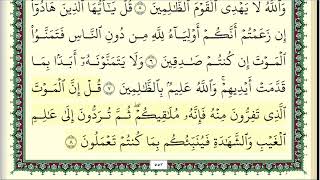 وَاللَّهُ لَا يَهْدِى الْقَوْمَ الظَّالِمِينَ ۝ قُلْ يَٰٓأَيُّهَا الَّذِينَ هَادُوٓا۟
إِن زَعَمْتُمْ أَنَّكُمْ أَوْلِيَآءُ لِلَّهِ مِن دُونِ النَّاسِ فَتَمَنَّوُا۟
الْمَوْتَ إِن كُنتُمْ صَٰدِقِينَ ۝ وَلَا يَتَمَنَّوْنَهُۥٓ أَبَدًۢا بِمَا
قَدَّمَتْ أَيْدِيهِمْ ۚ وَاللَّهُ عَلِيمٌۢ بِالظَّٰلِمِينَ ۝ قُلْ إِنَّ الْمَوْتَ
الَّذِى تَفِرُّونَ مِنْهُ فَإِنَّهُۥ مُلَٰقِيكُمْ ۖ ثُمَّ تُرَدُّونَ إِلَىٰ عَٰلِمِ
الْغَيْبِ وَالشَّهَٰدَةِ فَيُنَبِّئُكُم بِمَا كُنتُمْ تَعْمَلُونَ ۝٨
٥٥٣